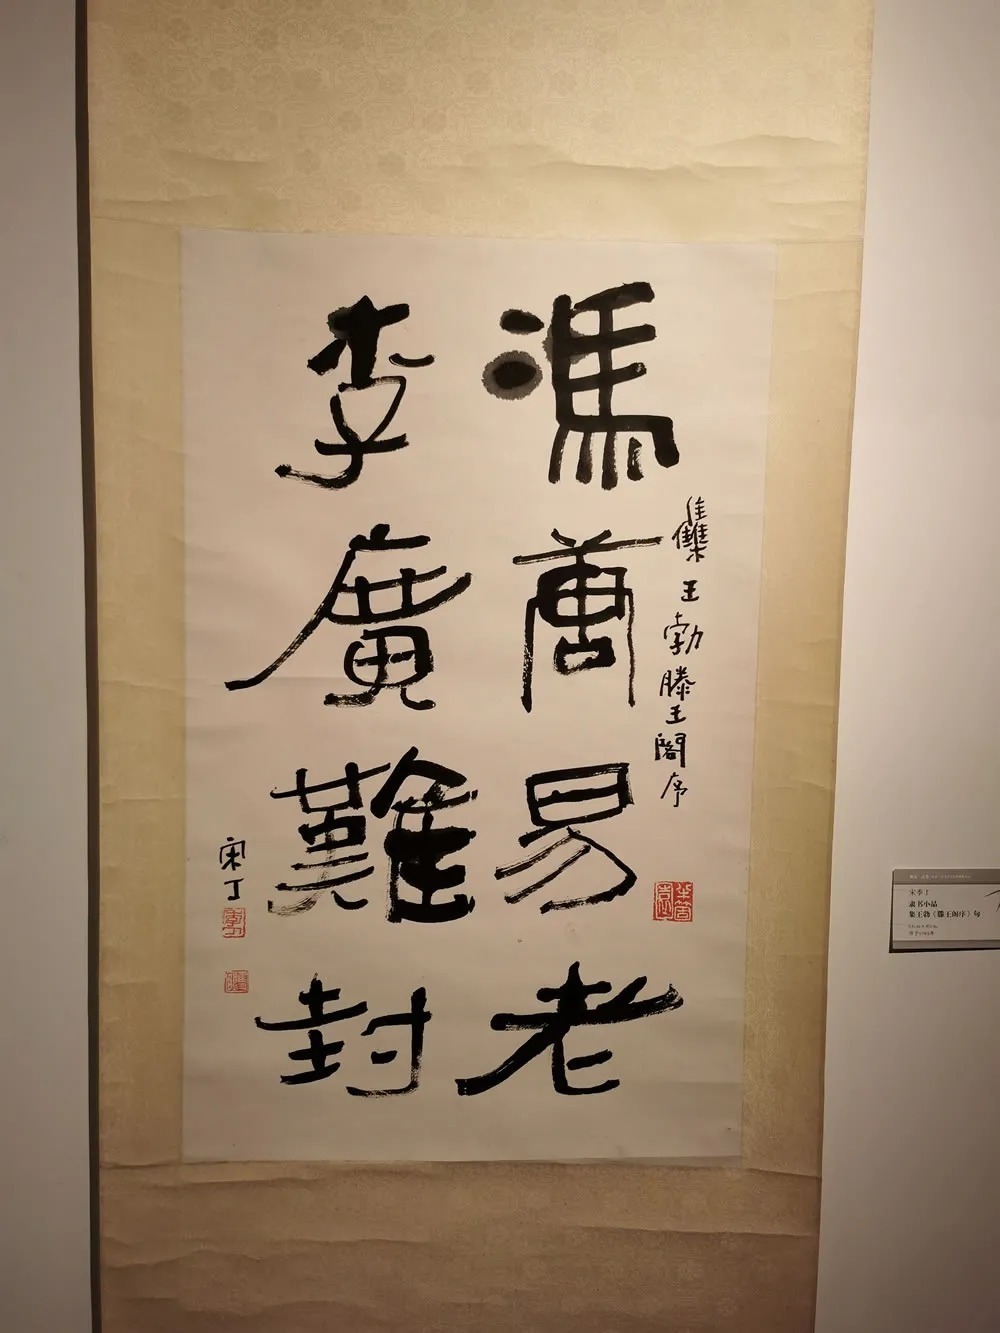 馮唐易老
李廣難封
集王勃滕王閣序
宋丁
宋季丁
隶书小品
集王勃《滕王阁序》句